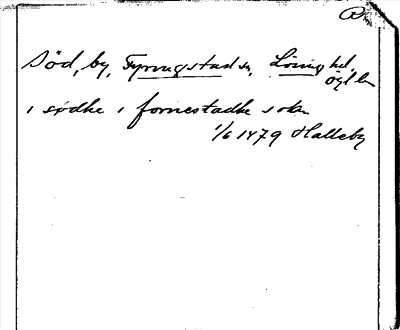 Söd, by, Fornestad sn, Löning hd
ögl län
i sødhe i fornestadhe sokn
1/6 1479 Halleby